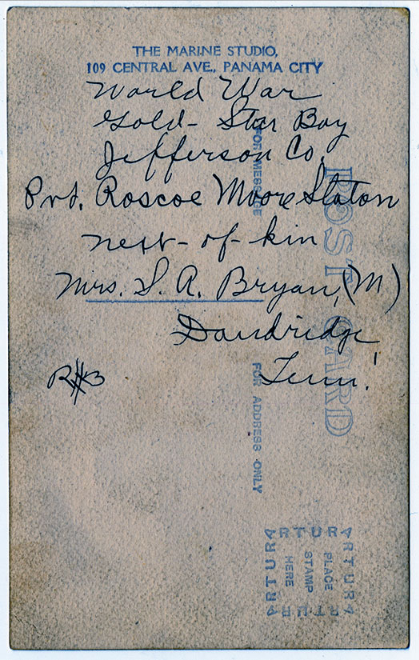 THE MARINE STUDIO,
109 CENTRAL AVE., PANAMA CITY
World War
Gold-Star Boy
Jefferson Co.
Pvt. Roscoe Moore Slaton
next-of-kin
Mrs. S. A. Bryan, (M)
Dandridge
Tenn.
R#3
POST CARD
FOR MESSAGE
FOR ADDRESS ONLY
ARTURA
ARTURA
PLACE
STAMP
HERE
ARTURA
ARTURA